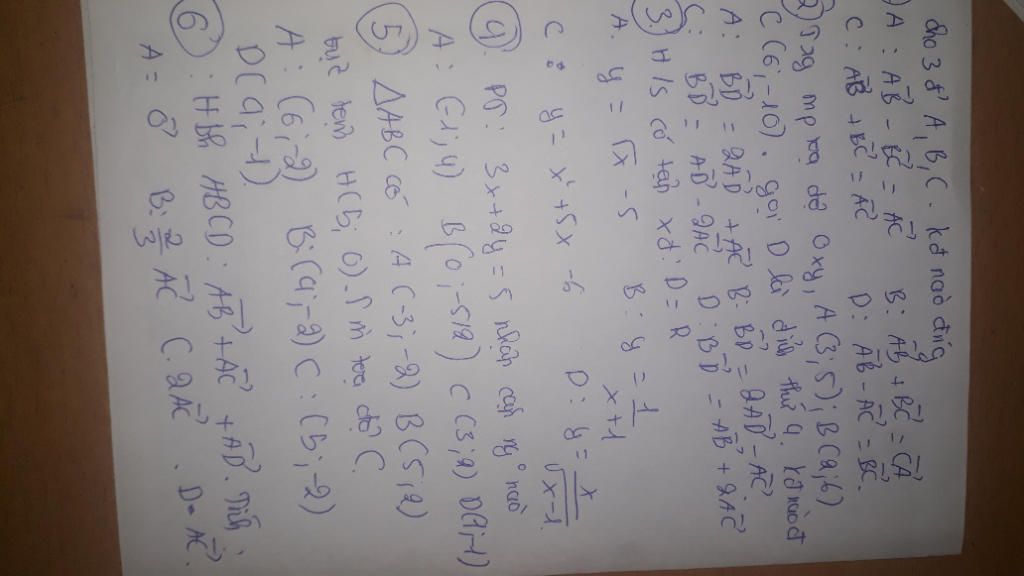 cho 3 đ' A, B, C. kđ nào đúng
A: AB⃗ - BC⃗ = AC⃗ B: AB⃗ + BC⃗ = CA⃗
C: AB⃗ + BC⃗ = AC⃗ D: AB⃗ - AC⃗ = BC⃗.
mp tọa độ Oxy, A(3;5); B(2;6)
C(6;-10). gọi D là đỉnh thứ 4. kđ nào đ
A: BD⃗ = 2AD⃗ + AC⃗ B: BD⃗ = 2AD⃗ - AC⃗
C: BD⃗ = AD⃗ - 2AC⃗ D: BD⃗ = AB⃗ + 2AC⃗
③ H/S có tập xđ: D = R
A. y = √x - 5 B: y = 1/x+1
C: y = x² + 5x - 6 D: y = x/√x-1.
④. PT: 3x + 2y = 5 nhận cặp ng° nào
A: (-1; 4) B(0; -5/2) C(3; 2) D(1;-1)
⑤ ΔABC có: A(-3; -2) B(5; 2)
trực tâm H(5; 0). Tìm tọa độ C.
A: (6; -2) B: (4; -2) C: (5; -2)
D(4; -1)
⑥: Hbh ABCD: AB⃗ + AC⃗ + AD⃗. Tính
A = 0⃗ B: 2/3 AC⃗ C. 2AC⃗. D = AC⃗.